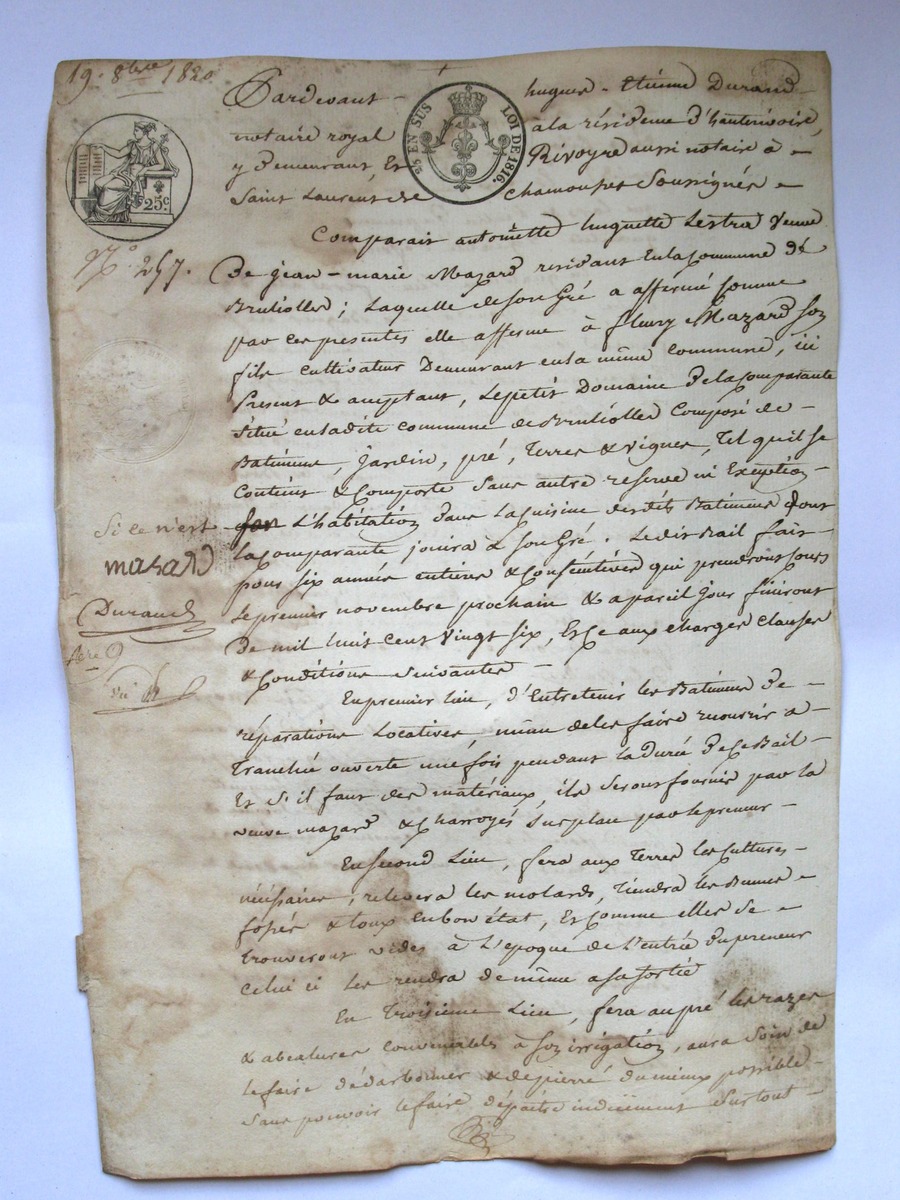 19. 8bre 1820
Pardevant - hugues - Etienne Durand
notaire royal à la résidence d'hauterivoire,
y Demeurant, Et Rivoyre aussi notaire à -
Saint Laurent de chamousset Soussignés -
25 EN SUS LOI DE 1816.
25c
N.o 257.
Comparait antoinette huguette Lestra Veuve
De jean-marie Mazard residant en la Commune de
Brullioles ; Laquelle de son Gré a affermé comme
par ces presentes elle afferme à fleury Mazard son
fils cultivateur Demeurant en la même Commune, ici
Present & aceptant, Le petit Domaine de la Comparante
Situé en ladite commune de Brullioles Composé de -
Batimens, Jardin, pré, Terres & Vignes, Tel qu'il se
Contient & Comporte Sans autre reserve ni Exeption -
L'habitation dans La Cuisine desdits Batimens dont
Si ce n'est
La Comparante jouira à son Gré. Ledit Bail fait
mazard
pour six années entieres & Consécutives qui prendront Cours
Le premier novembre prochain & a pareil jour finiront
Durand
De mil huit cent vingt six, Et Ce aux charges clauses
& Conditions Suivantes -
En premier lieu, d'Entretenir les Batimens De -
réparations Locatives, même de les faire recourrir a -
Tranchée ouverte une fois pendant la durée De Ce Bail -
Et S'il faut des matériaux, ils Seront fournis par la
veuve mazard & Charroyés sur place par le preneur -
En second Lieu, fera aux Terres les Cultures -
nécéssaires, relevera les molards, Tiendra les
fossés & En bon état, Et Comme elles se -
trouveront vides à L'époque de L'entrée du preneur
Celui ci les rendra de même a sa sortie
En Troisieme Lieu, fera au pré les razes
& abealures convenables à son irrigation, aura Soin de
le faire dédarbonner & depierré du mieux possible -
Sans pouvoir le faire dépaitre indüement Surtout -